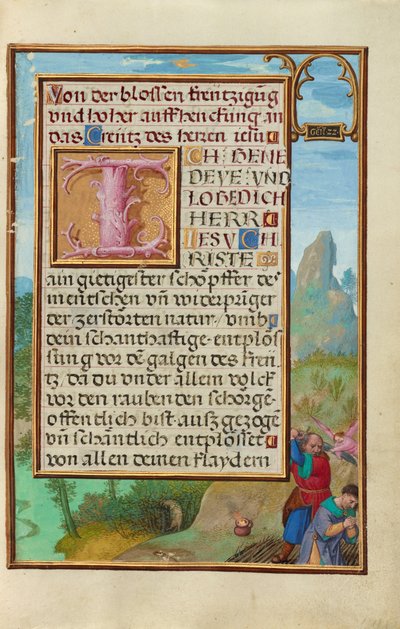 Von der blossen kreützigūg
vnd hoher auffhenckung an
das Creütz des herren iesu
ICH BENE
DEYE VND
LOBEDICH
HERR
IESV CH
RISTE
GEN̄ 22
ain gietigester schopffer des
mentschen vn̄ widerpringer
der zerstorten natur / vmb
dein schanthaftige entplos
sung vor dē galgen des kreü
tz / da du vnder allem volck
vor den raubenden schorgē
offentlich bist auszgezogē
vn̄ schantlich entplosset
von allen deinen klaydern